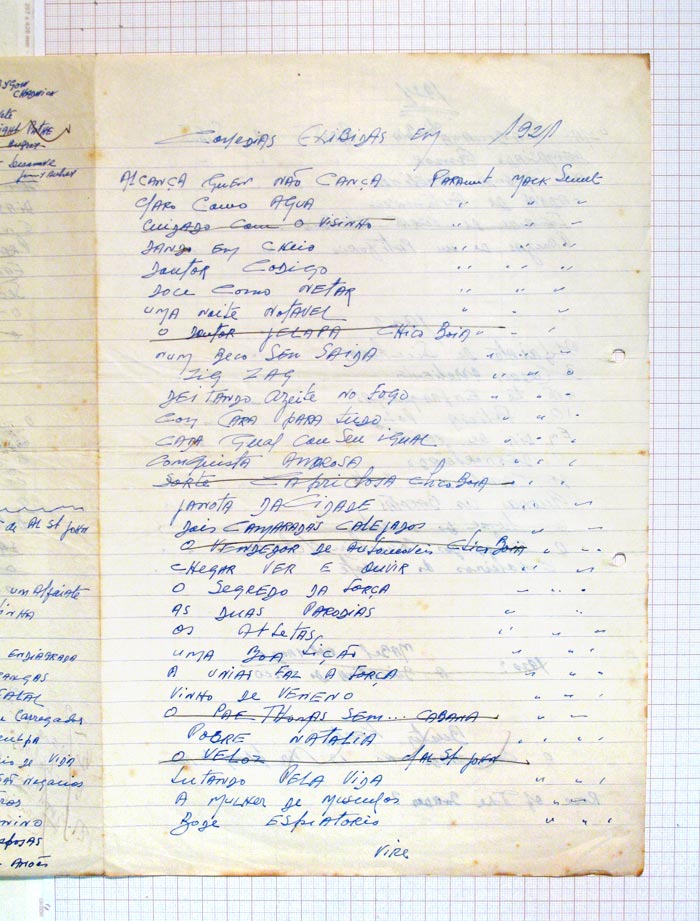 Comedias Exibidas em 1921
Alcança quem não cança Paramnt Mack Senett
Claro Como Agua " " "
Cuidado Com o Visinho " " "
Dando em cheio " " "
Doutor Codigo " " "
Doce Como Netar " " "
uma noite notavel " " "
o Doutor Jelapa Chico Boia " " "
num Beco Sem Saida " " "
Zig Zag " " "
Deitando azeite no fogo " " "
Com Cara para tudo " " "
Cada qual com seu igual " " "
Conquista Amorosa " " "
Sorte Caprichosa Chico Boia " "
Janota da Cidade " " "
Dois Camaradas Calejados " "
o Vendedor de Automoveis Chico Boia " "
chegar ver e ouvir " " "
o Segredo da Força " " "
as duas Parodias " "
os Atletas " " "
uma Boa Lição " " "
a união faz a força " " "
Vinho de Veneno " " "
o Pae Thomas Sem... Cabana " " "
Pobre Natalia " " "
o Veloz c/ Al St. John " "
Lutando Pela Vida " " "
a mulher de musculos " "
Bode Espiatorio " " "
Vire
de Al St John
um Alfaiate
inha
Endiabrada
angas
atal
Carregador
de Vida
Negocios
nino
Anões